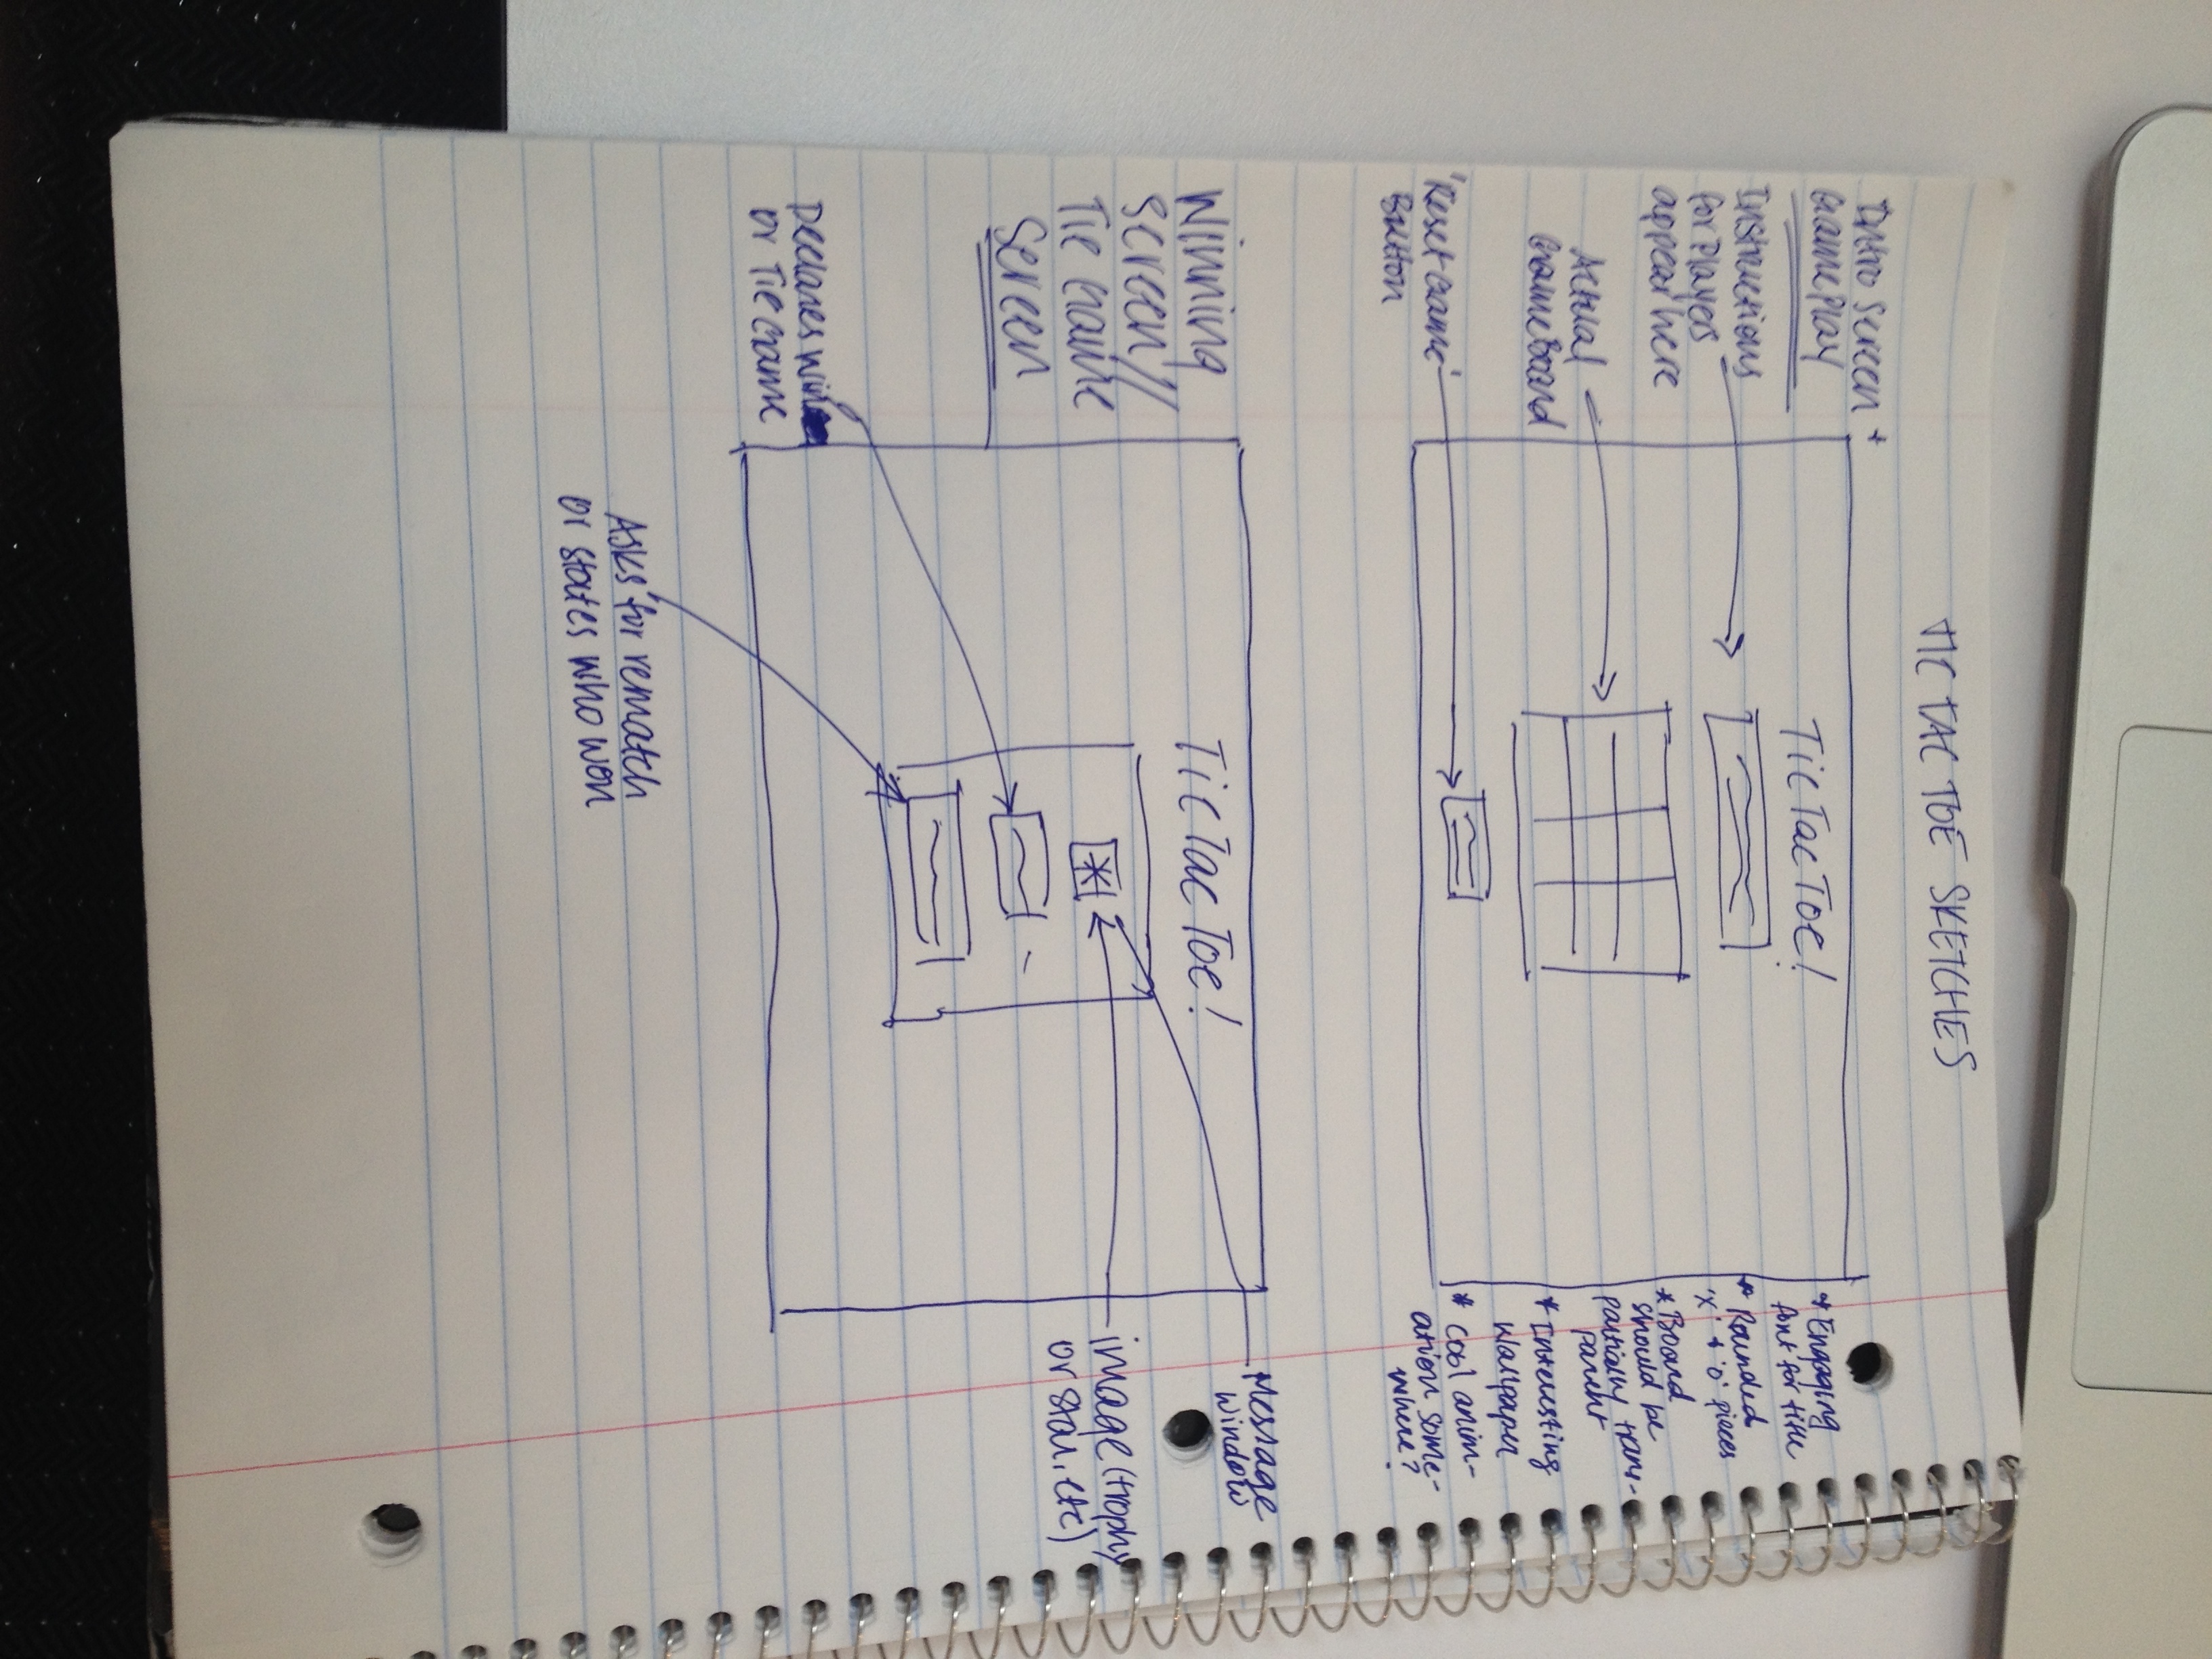 TIC TAC TOE SKETCHES
Intro Screen +
GamePlay
Instructions
for Players
appear here
Actual
GameBoard
'Reset Game'
Button
TicTacToe!
* Engaging
font for title
* Rounded
'x' + 'o' pieces
* Board
should be
partially trans-
parent
* Interesting
Wallpaper
* Cool anim-
ation some-
where?
Winning
Screen//
Tie Game
Screen
Declares win
or Tie Game
TicTacToe!
Message
Window
image (trophy
or star, etc)
Asks for rematch
or states who won